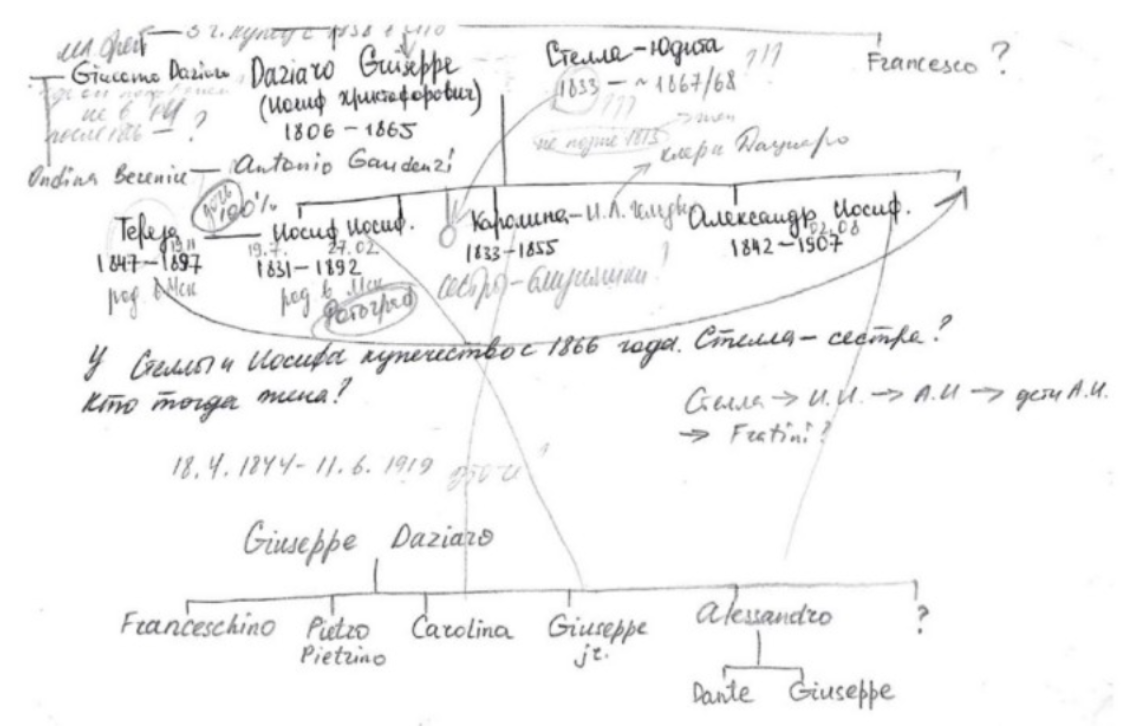 3 г. купец с 1858
Giacomo Daziaro
Daziaro Guiseppe
(Иосиф Христофорович)
1806 – 1865
Стелла – Юдита
1833 – ~ 1867/68
???
Francesco ?
не в
после 18 — ?
не позже 1815
Ondina Berenice — Antonio Gaudenzi
дочь
100%
Тереза
19.11
1847 – 1897
род в Мск
Иосиф Иосиф.
19.7. 27.02
1831 – 1892
род в Мск
фотограф
Каролина – И.Л.
1833 – 1855
сестры – близняшки?
Александр Иосиф.
02.08
1842 – 1907
У Стеллы и Иосифа купечество с 1866 года. Стелла – сестра?
Кто тогда жена?
Стелла → И.И. → А.И → дети А.И.
→ Fratini?
18.4.1844 – 11.6.1919
Giuseppe Daziaro
Franceschino
Pietro
Pietrino
Carolina
Giuseppe
jr.
Alessandro
?
Dante Giuseppe